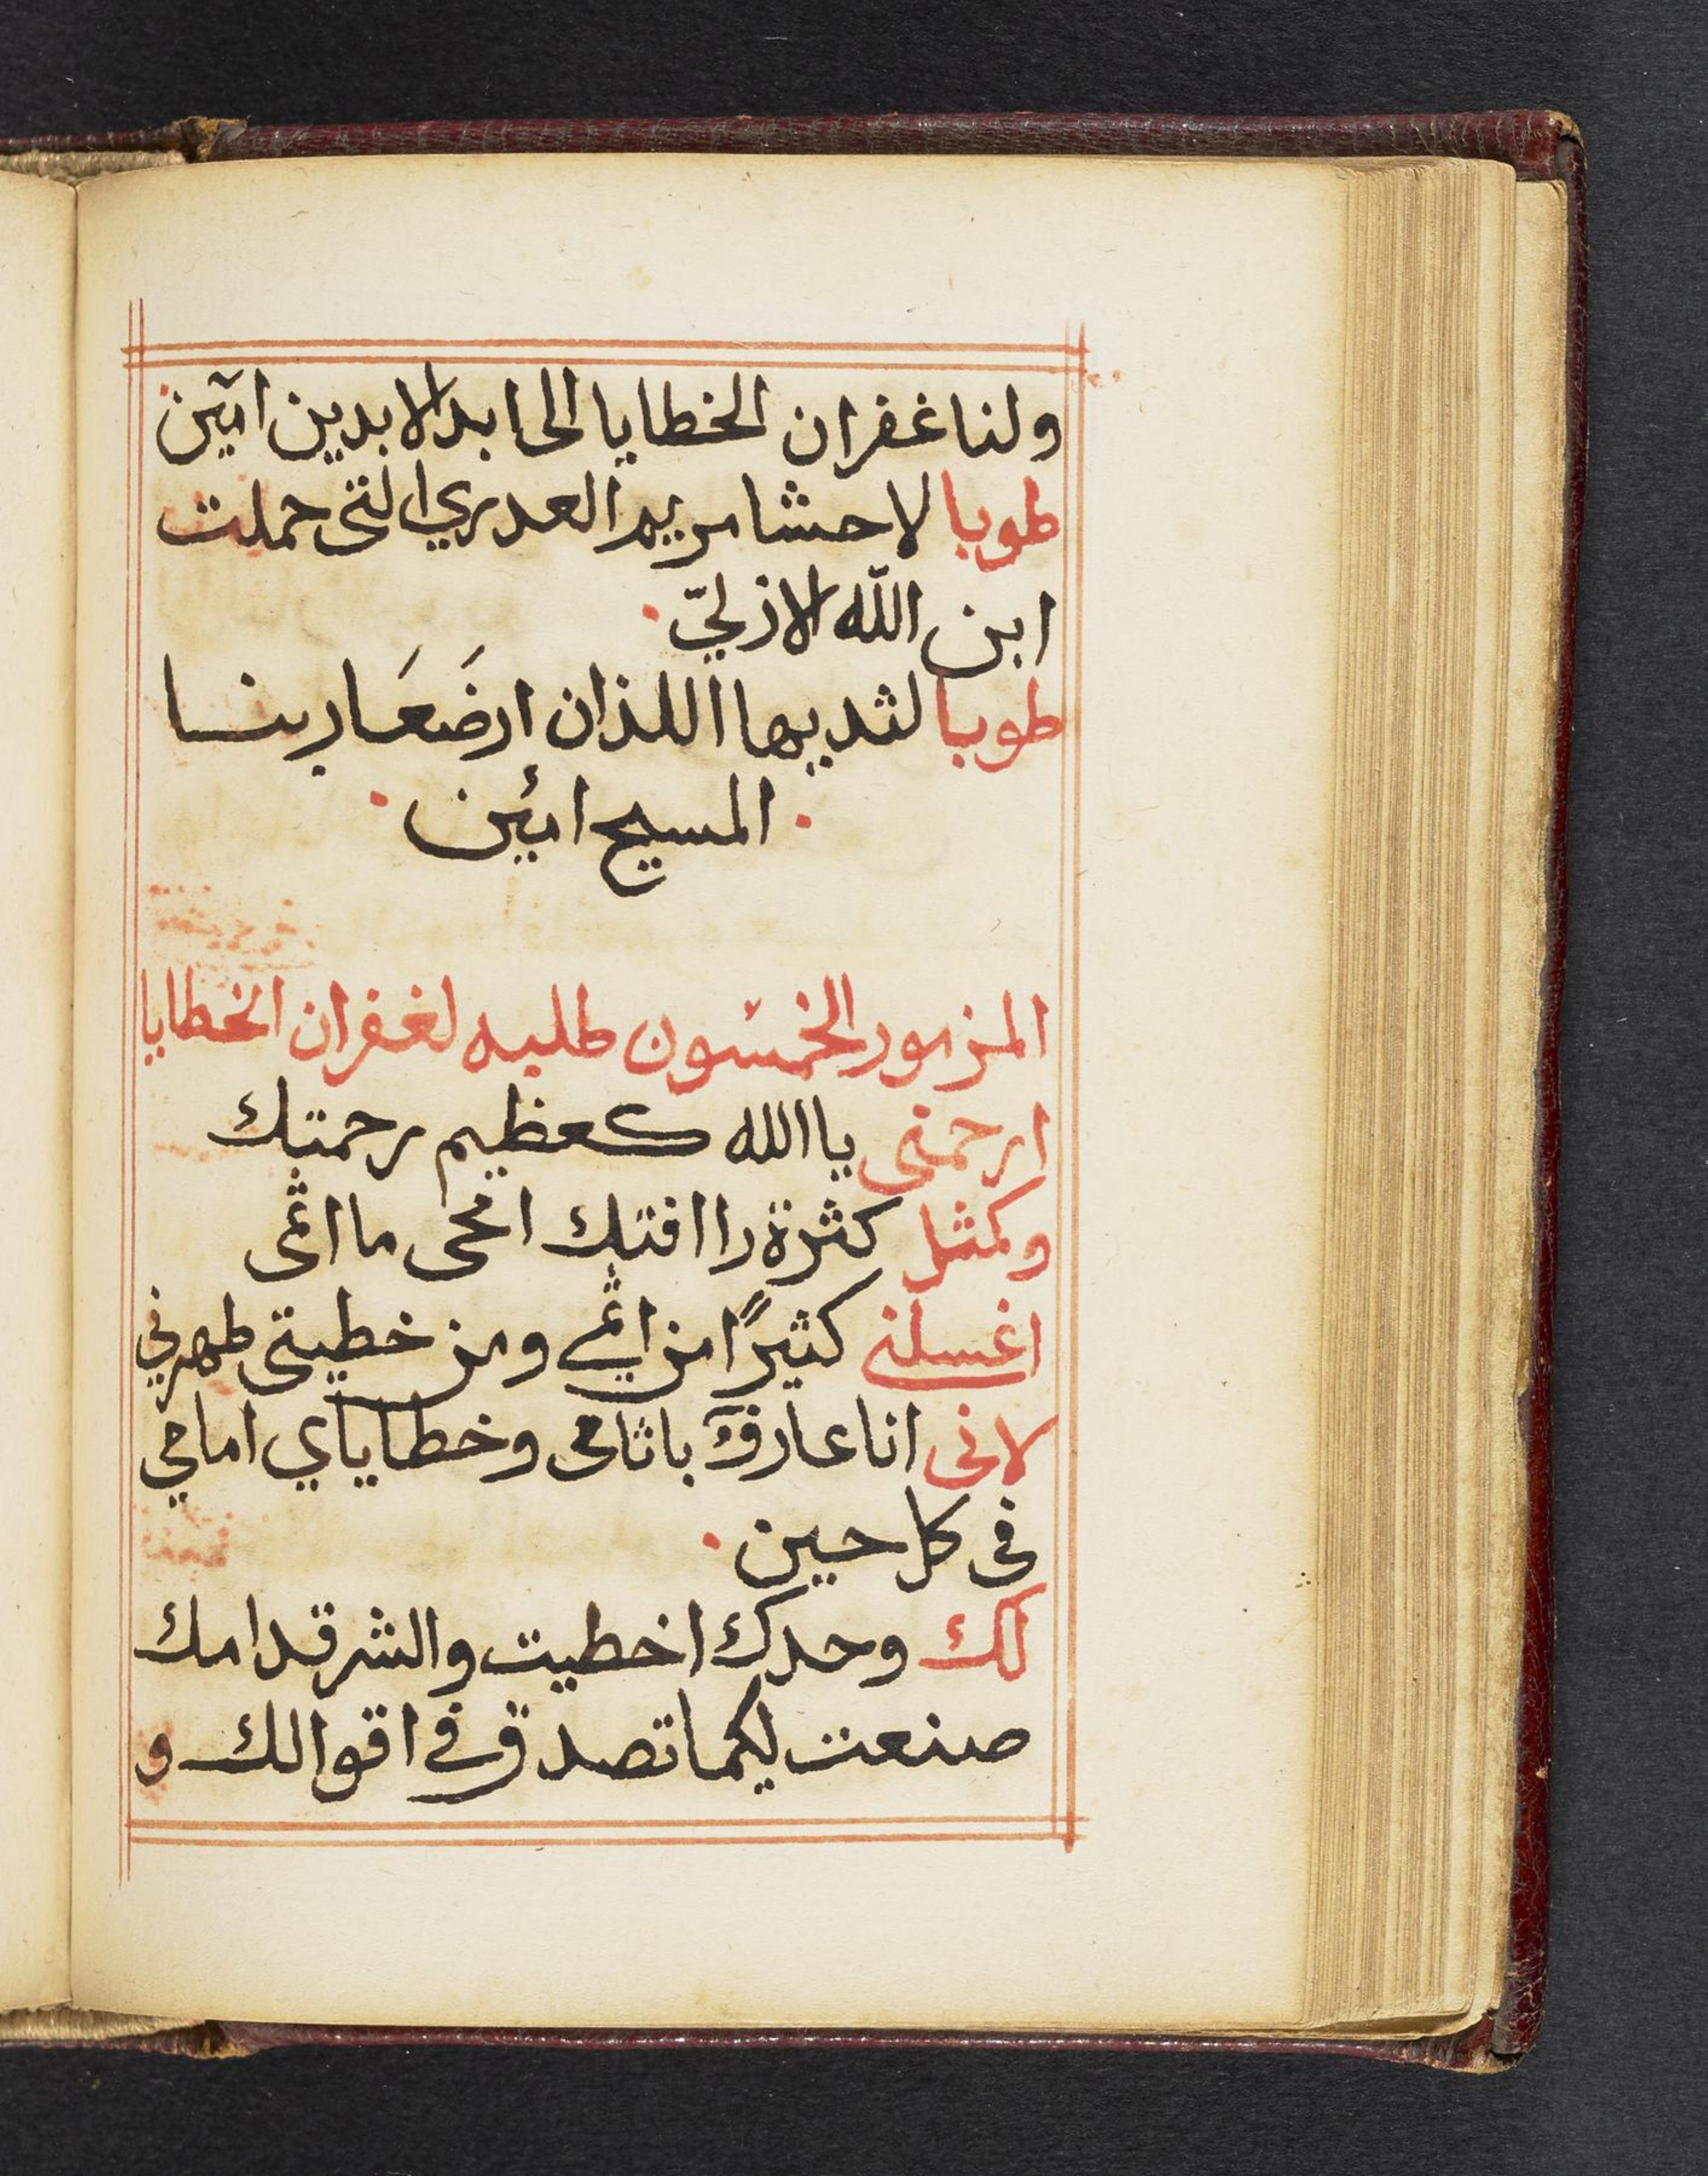 ولنا غفران الخطايا الى ابد الابدين امين
طوبا لاحشا مريم العدري التى حملت
ابن اللّه الازليّ
طوبا لثديها اللذان ارضَعَا ربنا
المسيح امين
المزمور الخمسون طلبه لغفران الخطايا
ارحمنى يا الله كعظيم رحمتك
وكمثل كثرة راافتك امحى مااثمى
اغسلنى كثيرًا من اثمي ومن خطيتى طهرني
لانى انا عارف باثامى وخطاياي امامي
فى كل حين
لك وحدك اخطيت والشر قدامك
صنعت ليكما تصدق في اقوالك و